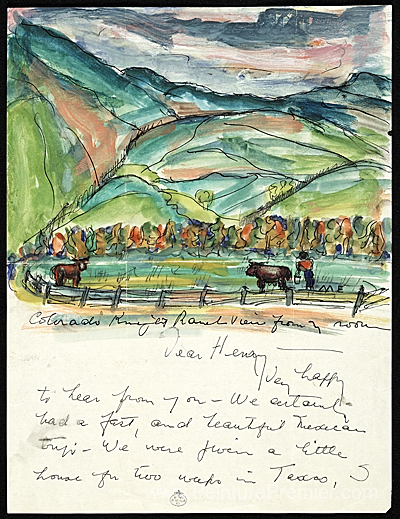 Colorado Ranch View from my room
Dear Henry —
Very happy
to hear from you - We certainly
had a fast, and beautiful Mexican
trip - We were given a little
house for two weeks in Taxco,